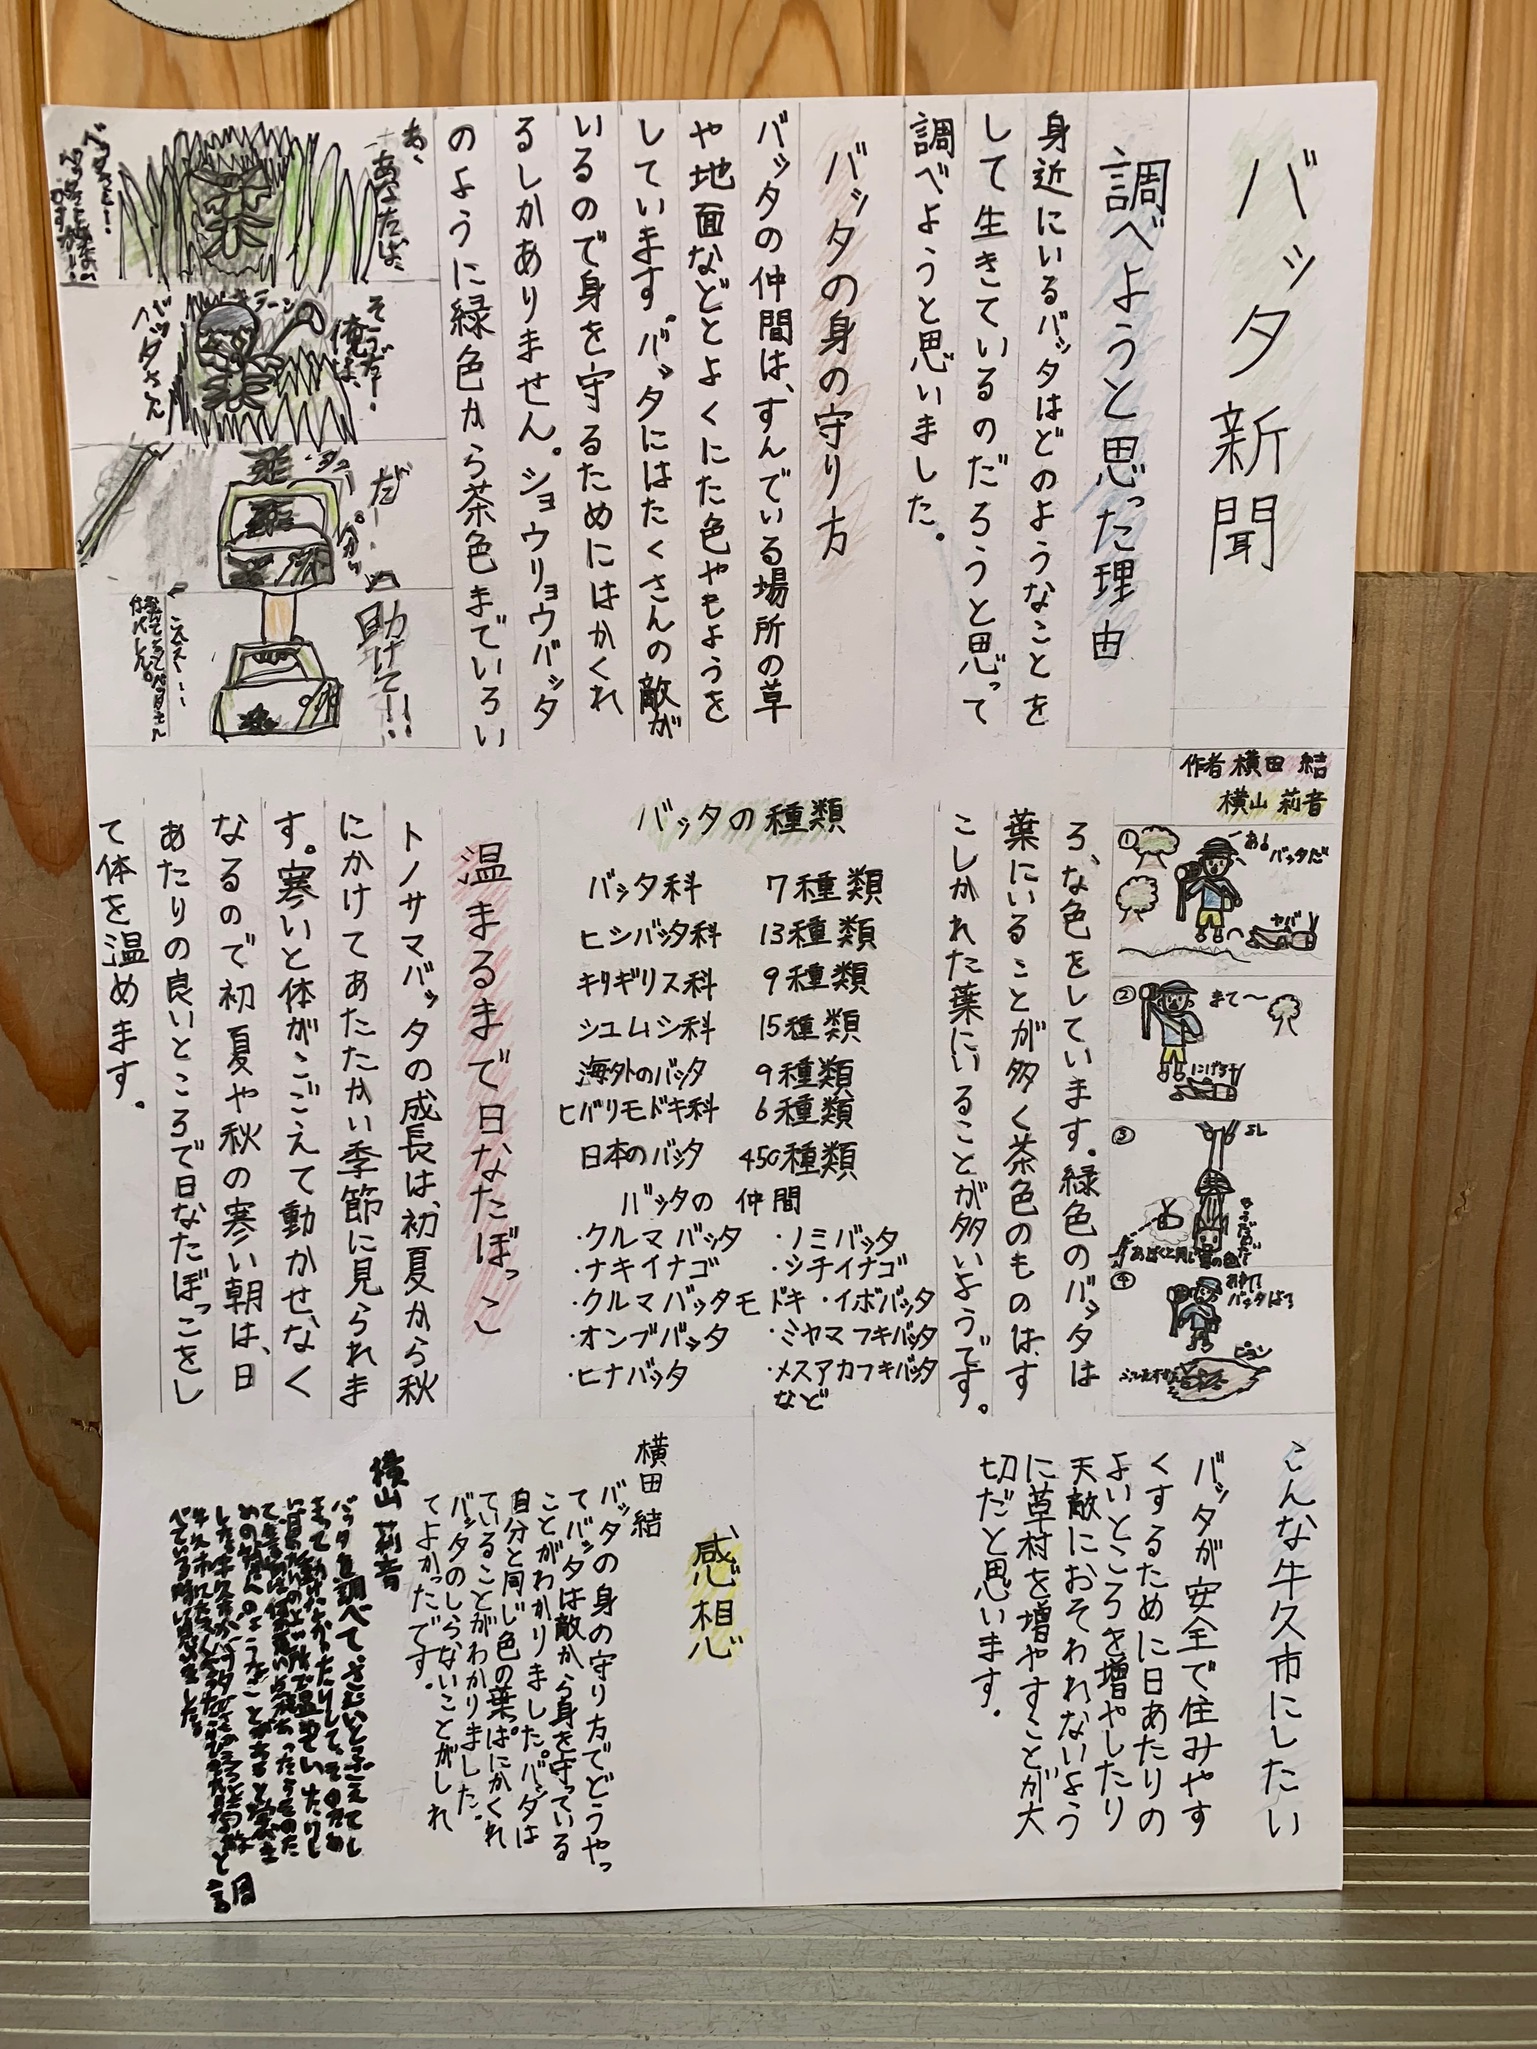 バッタ新聞
調べようと思った理由
身近にいるバッタはどのようなことを
して生きているのだろうと思って
調べようと思いました。
バッタの身の守り方
バッタの仲間は、すんでいる場所の草
や地面などとよくにた色やもようを
しています。バッタにはたくさんの敵が
いるので身を守るためにはかくれ
るしかありません。ショウリョウバッタ
のように緑色から茶色までいろい
あ、
あなたは、
バッタさん
そうだ!
俺は、
キラーン
だー
助けて!!
作者 横田 結
横山 莉音
①
あ!
バッタだ
ヤバ
②
まて〜
にげろ
③
よし
④
あれ?
ピョン
ろな色をしています。緑色のバッタは
葉にいることが多く茶色のものは、す
こしかれた葉にいることが多いようです。
バッタの種類
バッタ科 7種類
ヒシバッタ科 13種類
キリギリス科 9種類
シュムシ科 15種類
海外のバッタ 9種類
ヒバリモドキ科 6種類
日本のバッタ 450種類
バッタの 仲間
・クルマバッタ ・ノミバッタ
・ナキイナゴ ・シチイナゴ
・クルマバッタモドキ ・イボバッタ
・オンブバッタ ・ミヤマフキバッタ
・ヒナバッタ ・メスアカフキバッタ
など
温まるまで日なたぼっこ
トノサマバッタの成長は、初夏から秋
にかけてあたたかい季節に見られま
す。寒いと体がこごえて動かせなく
なるので初夏や秋の寒い朝は、日
あたりの良いところで日なたぼっこをし
て体を温めます。
こんな牛久市にしたい
バッタが安全で住みやす
くするために日あたりの
よいところを増やしたり
天敵におそわれないよう
に草村を増やすことが大
切だと思います。
感想
横田 結
バッタの身の守り方でどうやっ
てバッタは敵から身を守っている
ことがわかりました。バッタは
自分と同じ色の葉っぱにかくれ
ていることがわかりました。
バッタのしらないことがしれ
てよかったです。
横山 莉音
バッタを調べて、さむいとこごえてし